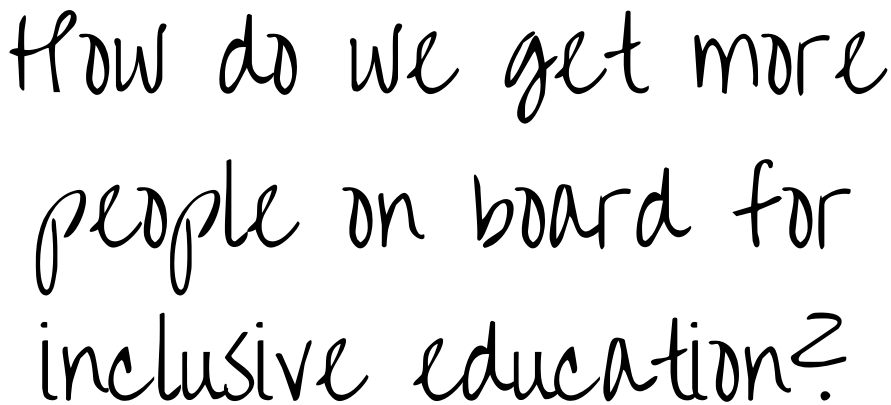 How do we get more
people on board for
inclusive education?